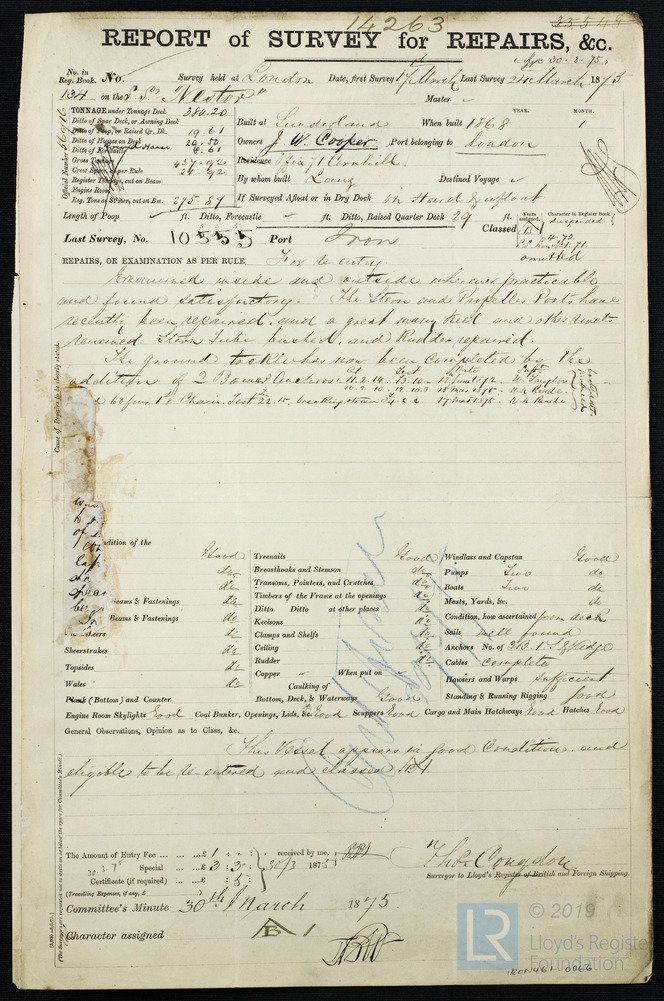 14263
REPORT of SURVEY for REPAIRS, &c.
Rec 30.3.75
No. in Reg. Book. No. Survey held at London Date, first Survey 17 March Last Survey 24 March 1875
134 on the S Sr "Nestor" Master
TONNAGE under Tonnage Deck 380.20
Ditto of Spar Deck, or Awning Deck
Ditto of Poop, or Raised Qr. Dk. 19.61
Ditto of Houses on Deck 29.50
Ditto of Forecastle 8.61
Gross Tonnage 437.92
Crew Space, as per Rule 24.92
Register Tonnage, cut on Beam
Engine Room
Reg. Tons as St'mer, cut on Bm. 275.87
Official Number 56916
Built at Sunderland When built 1868 YEAR. MONTH.
Owners J. W. Cooper Port belonging to London
Residence 71 Cornhill
By whom built Laing Destined Voyage
If Surveyed Afloat or in Dry Dock On Hard & afloat
Length of Poop ft. Ditto, Forecastle ft. Ditto, Raised Quarter Deck 29 ft.
Classed Years assigned. Character in Register Book.
suspended
4.72
omitted
Last Survey, No. 10555 Port Iron
REPAIRS, OR EXAMINATION AS PER RULE For Re entry
Examined inside and outside wherever practicable
and found satisfactory. The Stern and Propeller Posts have
recently been repaired, and a great many keel and other rivets
renewed. Stern Tube bushed, and Rudder repaired.
The ground tackle has now been completed by the
addition of 2 Bower Anchors
60 fms Chain. Test 22.15. breaking strain 17 Mar 1875
Cause of Repairs to be clearly stated.
Condition of the
Good
do
Beams & Fastenings do
Beams & Fastenings do
Sheerstrakes do
Topsides do
Wales do
Plank (Bottom) and Counter
Treenails Good
Breasthooks and Stemson do
Transoms, Pointers, and Crutches do
Timbers of the Frame at the openings do
Ditto Ditto at other places do
Keelsons do
Clamps and Shelfs do
Ceiling do
Rudder do
Copper When put on
Caulking of
Bottom, Deck, & Waterways Good
Windlass and Capstan Good
Pumps Two do
Boats Two do
Masts, Yards, &c. do
Condition, how ascertained from deck
Sails well found
Anchors No. of 3B 1.S & Kedge
Cables complete
Hawsers and Warps sufficient
Standing & Running Rigging good
Engine Room Skylights Good Coal Bunker, Openings, Lids, &c. Good Scuppers Good Cargo and Main Hatchways Good Hatches Good
General Observations, Opinion as to Class, &c.
This Vessel appears in good Condition and
eligible to be re-entered and classed
The Amount of Entry Fee £ 1 : - : - received by me,
30.3.75 Special £ 3 : 3 : - 30/3 1875
Certificate (if required) : 5 :
(Travelling Expenses, if any, £ )
Thos. Congdon
Surveyor to Lloyd's Register of British and Foreign Shipping.
Committee's Minute 30th March 1875
Character assigned
LR © 2019
Lloyd's Register
Foundation
IRON461-0066